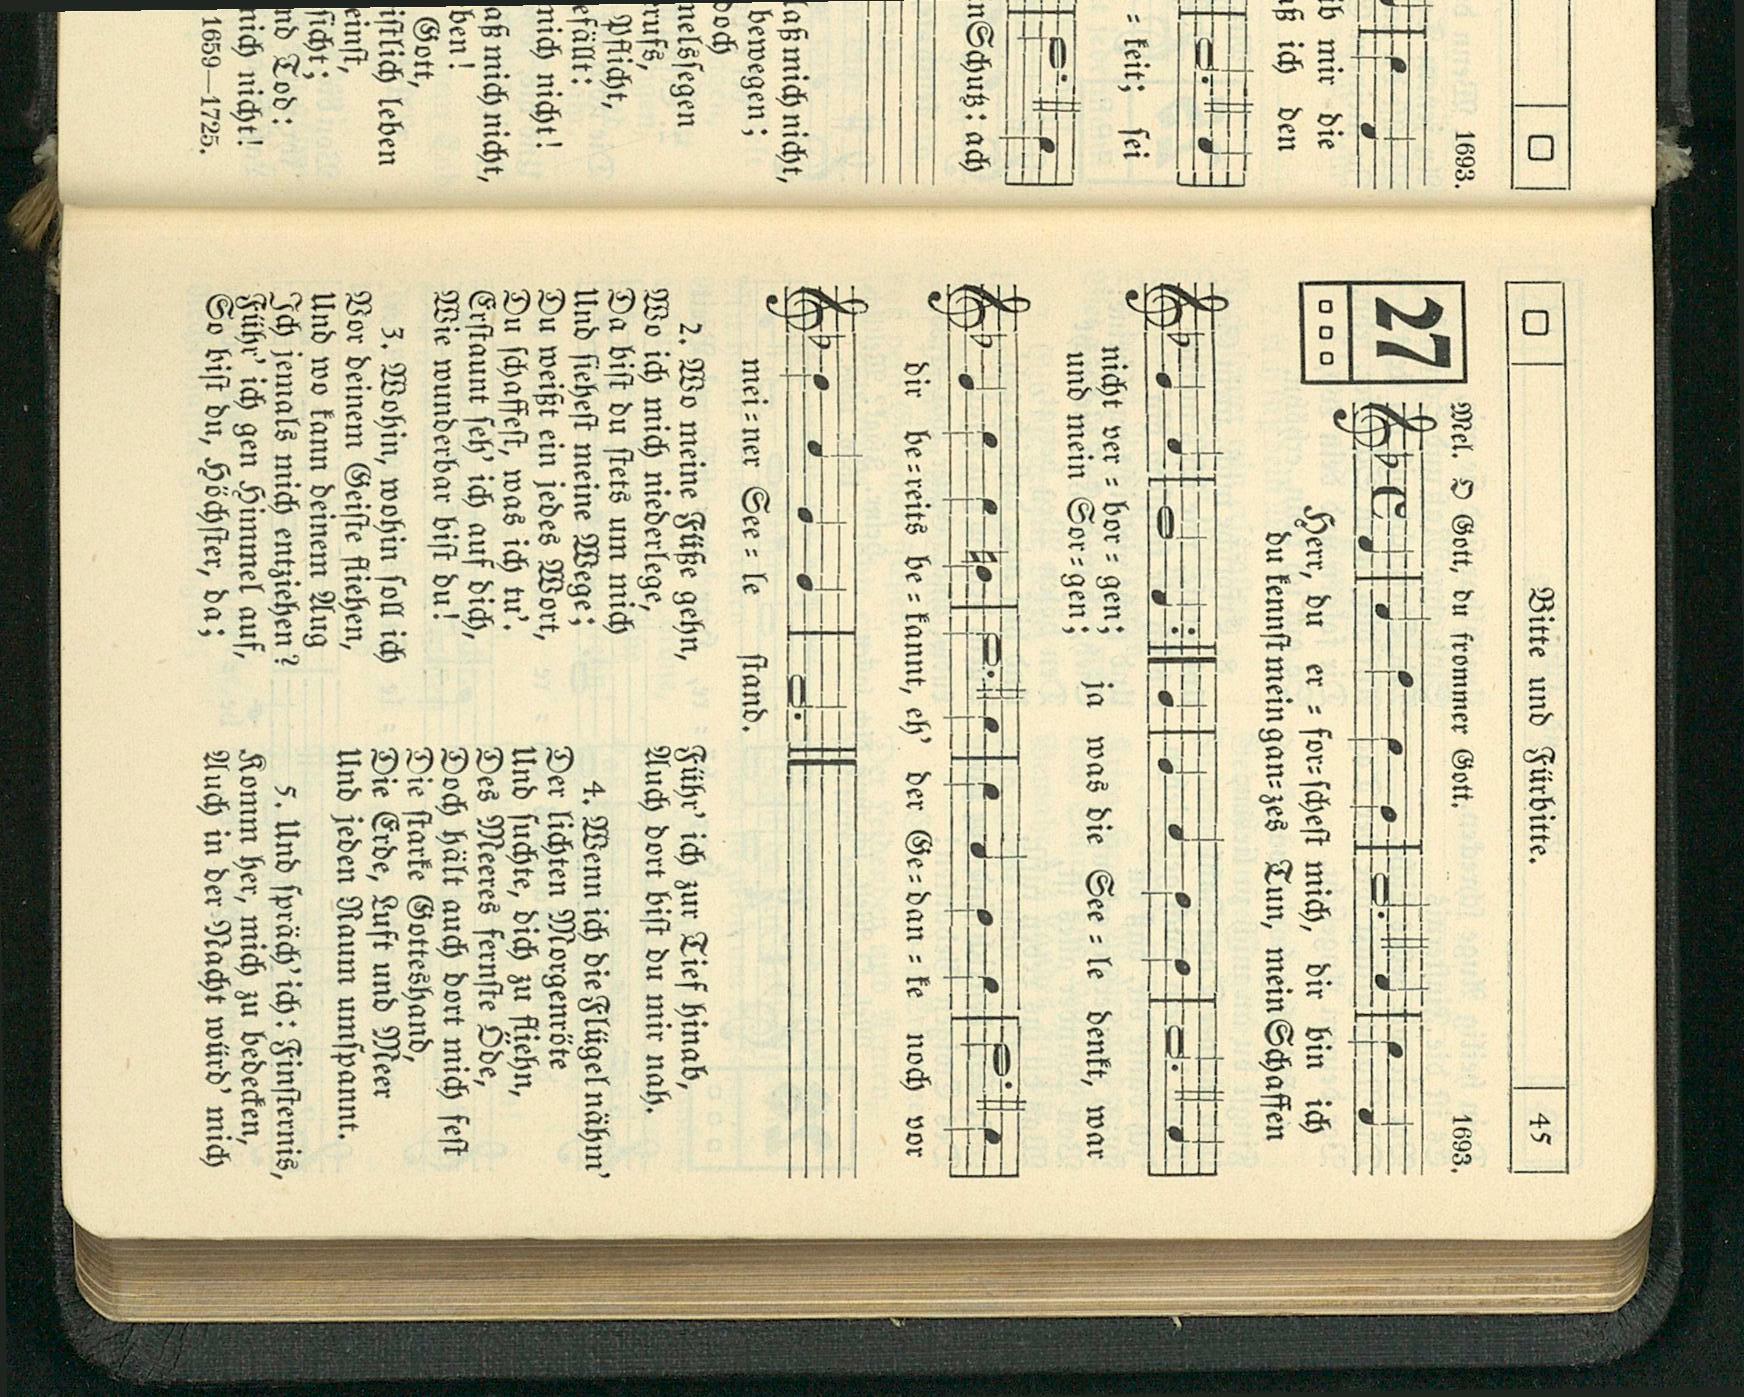 1693.
ib mir die
aß ich den
= keit; sei
n Schutz: ach
laß mich nicht,
bewegen;
doch
melssegen
rufs,
Pflicht,
efällt:
mich nicht!
aß mich nicht,
ben!
Gott,
istlich leben
einst,
sicht;
nd Tod:
mich nicht!
1659—1725.
Bitte und Fürbitte.
45
27
Mel. O Gott, du frommer Gott.
1693.
Herr, du er = for=schest mich, dir bin ich
du kennst mein gan=zes Tun, mein Schaffen
nicht ver = bor = gen; ja was die See = le denkt, war
und mein Sor=gen;
dir be=reits be = kannt, eh' der Ge=dan = ke noch vor
mei=ner See = le stand.
2. Wo meine Füße gehn,
Wo ich mich niederlege,
Da bist du stets um mich
Und siehest meine Wege;
Du weißt ein jedes Wort,
Du schaffest, was ich tu'.
Erstaunt seh' ich auf dich,
Wie wunderbar bist du!
3. Wohin, wohin soll ich
Vor deinem Geiste fliehen,
Und wo kann deinem Aug
Ich jemals mich entziehen?
Führ' ich gen Himmel auf,
So bist du, Höchster, da;
Führ' ich zur Tief hinab,
Auch dort bist du mir nah.
4. Wenn ich die Flügel nähm'
Der lichten Morgenröte
Und suchte, dich zu fliehn,
Des Meeres fernste Öde,
Doch hält auch dort mich fest
Die starke Gotteshand,
Die Erde, Luft und Meer
Und jeden Raum umspannt.
5. Und spräch' ich: Finsternis,
Komm her, mich zu bedecken,
Auch in der Nacht würd' mich